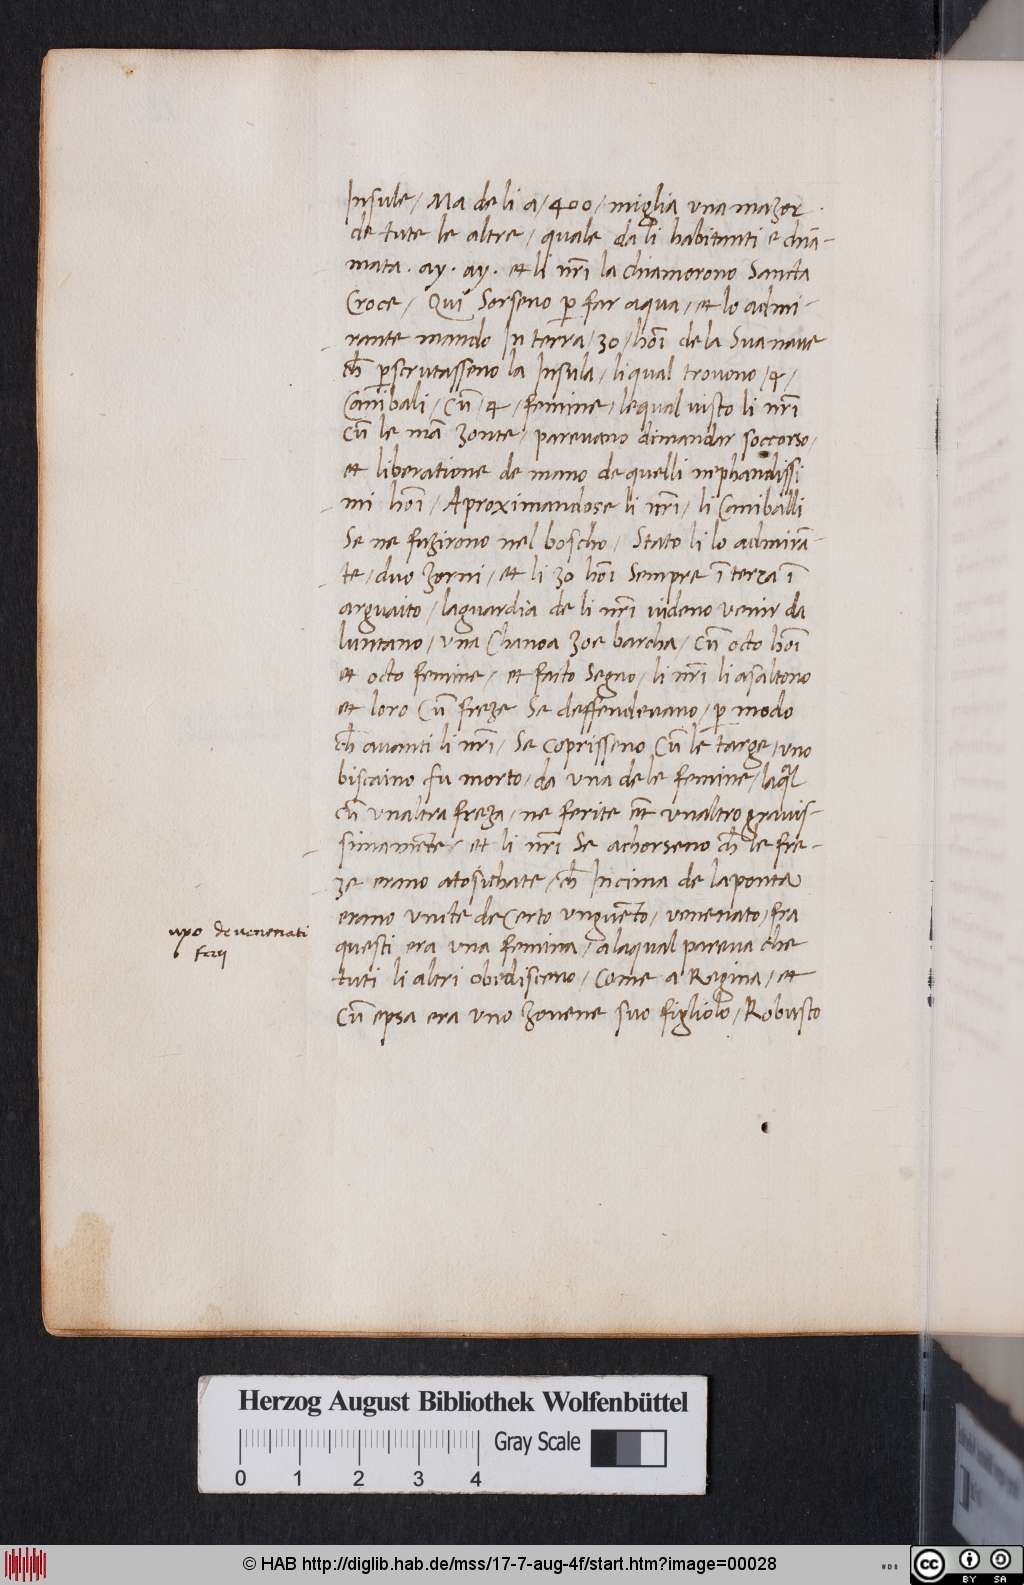 Insule / Ma de li a / 400 / miglia vna mazor
de tute le altre / quale da li habitanti e chia-
mata . ay . ay . et li nr̃i la chiamorono Sancta
Croce / Qui Sorseno p̲ far aqua / et lo admi-
rante mando In terra / 30 / hoĩ de la Sua naue
ch̃ p̲scrutasseno la Insula / li qual trouono / 4 /
Canibali / cũ / 4 / femine / le qual uisto li nr̃i
cũ le mã zonte / pareuano dimandar soccorso /
et liberatione de mano de quelli nephandissi
mi hoĩ / Aproximandose li nr̃i / li Caniballi
Se ne fuzirono nel boscho / Stato li lo admirã-
te / duo zorni / et li 30 hoĩ Sempre ĩ terra ĩ
arguaito / la guardia de li nr̃i uideno venir da
luntano / vna Chanoa zoe barcha / cũ octo hoĩ
et octo femine / et facto Segno / li nr̃i li asaltono
et loro cũ freze Se deffendeuano / p̲ modo
ch̃ auanti li nr̃i / Se coprisseno cũ le targe / vno
biscaino fu morto / da vna de le femine / la ql̃
cũ vnaltra freza / ne ferite et̃ vnaltro grauis-
simamẽte / et li nr̃i Se achorseno ch̃ le fre-
ze erano atosichate / ch̃ In cima de la ponta
erano vncte de certo vnguẽto / venenato / fra
questi era vna femina / a la qual pareua che
tuti li altri obedisceno / Come a Regina / et
cũ epsa era vno zouene suo figliolo / Robusto
de venenati
Herzog August Bibliothek Wolfenbüttel
Gray Scale
0 1 2 3 4
© HAB http://diglib.hab.de/mss/17-7-aug-4f/start.htm?image=00028
WDB
cc BY SA